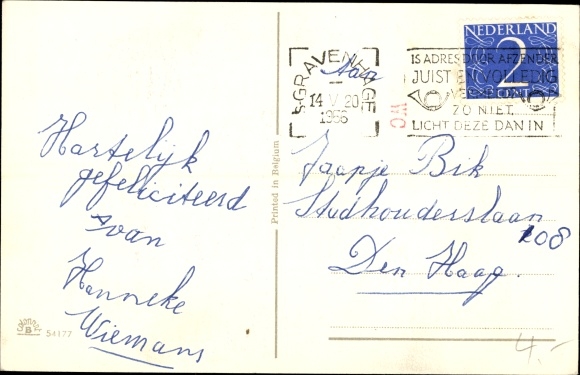 Hartelijk
gefeliciteerd
van
Hanneke
Wiemans
Colorprint
B
54177
Printed in Belgium
Aan
Jaapje Bik
Stadhouderslaan
108
Den Haag.
NEDERLAND
2
CENT
'S-GRAVENHAGE
14 V 20
1956
IS ADRES DOOR AFZENDER
JUIST EN VOLLEDIG
VERMELD
ZO NIET,
LICHT DEZE DAN IN
4.-